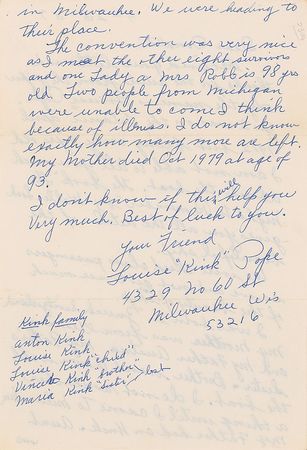 in Milwaukee. We were heading to
their place.
The convention was very nice
as I meet the other eight survivors
and one Lady a Mrs Robb is 98 yrs
old. Two people from Michigan
were unable to come I think
because of illness. I do not know
exactly how many more are left.
My Mother died Oct 1979 at age of
93.
I don't know if this will help you
Very much. Best of luck to you.
Your Friend
Louise "Kink" Pope
4329 No 60 St
Milwaukee Wis
53216
Kink family
Anton Kink
Louise Kink
Louise Kink "child"
Vincent Kink "brother"
Maria Kink "sister" lost